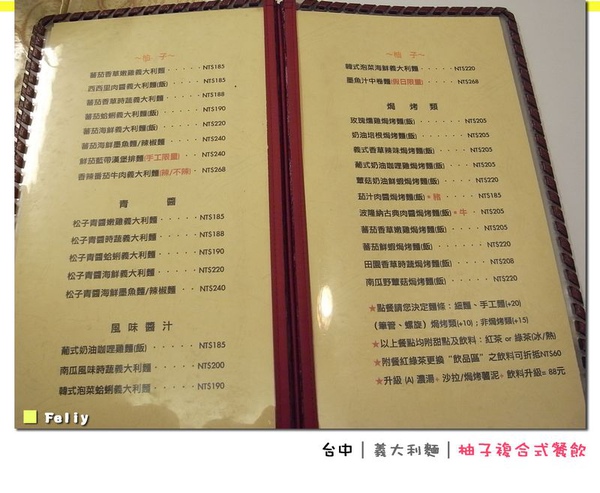 ～柚 子～
蕃茄香草嫩雞義大利麵・・・・・NT$185
西西里肉醬義大利麵(飯)・・・・NT$185
蕃茄香草時蔬義大利麵・・・・・NT$188
蕃茄蛤蜊義大利麵(飯)・・・・・NT$190
蕃茄海鮮義大利麵(飯)・・・・・NT$220
蕃茄海鮮墨魚麵/辣椒麵・・・・NT$240
鮮茄藍帶漢堡排麵(手工限量)・・NT$240
香辣蕃茄牛肉義大利麵(辣/不辣)・NT$268
青 醬
松子青醬嫩雞義大利麵・・・・NT$185
松子青醬時蔬義大利麵・・・・NT$188
松子青醬蛤蜊義大利麵・・・・NT$190
松子青醬海鮮義大利麵・・・・NT$220
松子青醬海鮮墨魚麵/辣椒麵・・NT$240
風 味 醬 汁
葡式奶油咖哩雞麵(飯)・・・・NT$185
南瓜風味時蔬義大利麵・・・・NT$200
韓式泡菜蛤蜊義大利麵・・・・NT$190
～柚 子～
韓式泡菜海鮮義大利麵・・・・NT$220
墨魚汁中卷麵(假日限量)・・・・NT$268
焗 烤 類
玫瑰燻雞焗烤麵(飯)・・・・・NT$205
奶油培根焗烤麵(飯)・・・・・NT$205
義式香草辣味焗烤麵(飯)・・・・NT$205
葡式奶油咖哩雞焗烤麵(飯)・・・NT$205
蘑菇奶油鮮蝦焗烤麵(飯)・・・・NT$220
茄汁肉醬焗烤麵(飯)★豬・・・・NT$185
波隆納古典肉醬焗烤麵(飯)★牛・・NT$205
蕃茄香草雞焗烤麵(飯)・・・・・NT$205
蕃茄鮮蝦焗烤麵(飯)・・・・・・NT$220
田園香草時蔬焗烤麵(飯)・・・・NT$208
南瓜野蘑菇焗烤麵(飯)・・・・・NT$220
★點餐請您決定麵條：細麵、手工麵(+20)
(筆管、螺旋) 焗烤類(+10)；非焗烤(+15)
★以上餐點均附甜點及飲料：紅茶 or 綠茶(冰/熱)
★附餐紅綠茶更換“飲品區”之飲料可折抵NT$60
★升級 (A) 濃湯+ 沙拉/焗烤薯泥+ 飲料升級= 88元
Feliy
台中│義大利麵│柚子複合式餐飲